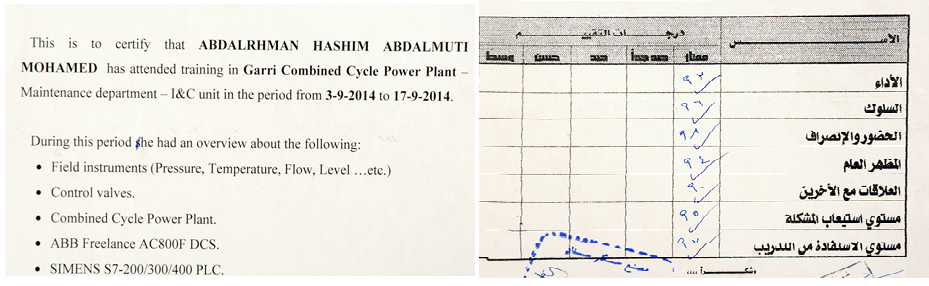 This is to certify that ABDALRHMAN HASHIM ABDALMUTI
MOHAMED has attended training in Garri Combined Cycle Power Plant –
Maintenance department – I&C unit in the period from 3-9-2014 to 17-9-2014.
During this period she had an overview about the following:
• Field instruments (Pressure, Temperature, Flow, Level …etc.)
• Control valves.
• Combined Cycle Power Plant.
• ABB Freelance AC800F DCS.
• SIMENS S7-200/300/400 PLC.
الأســـس درجـــات التقييـــم
ممتاز جيد جداً جيد حسن وسط
الأداء ٩٢
السلوك ٩٦
الحضور والإنصراف ٩٨
المظهر العام ٩٤
العلاقات مع الأخرين ٩٠
مستوي استيعاب المشكلة ٩٥
مستوي الاستفادة من التدريب ٩٧
وشكـــراً ،،،،